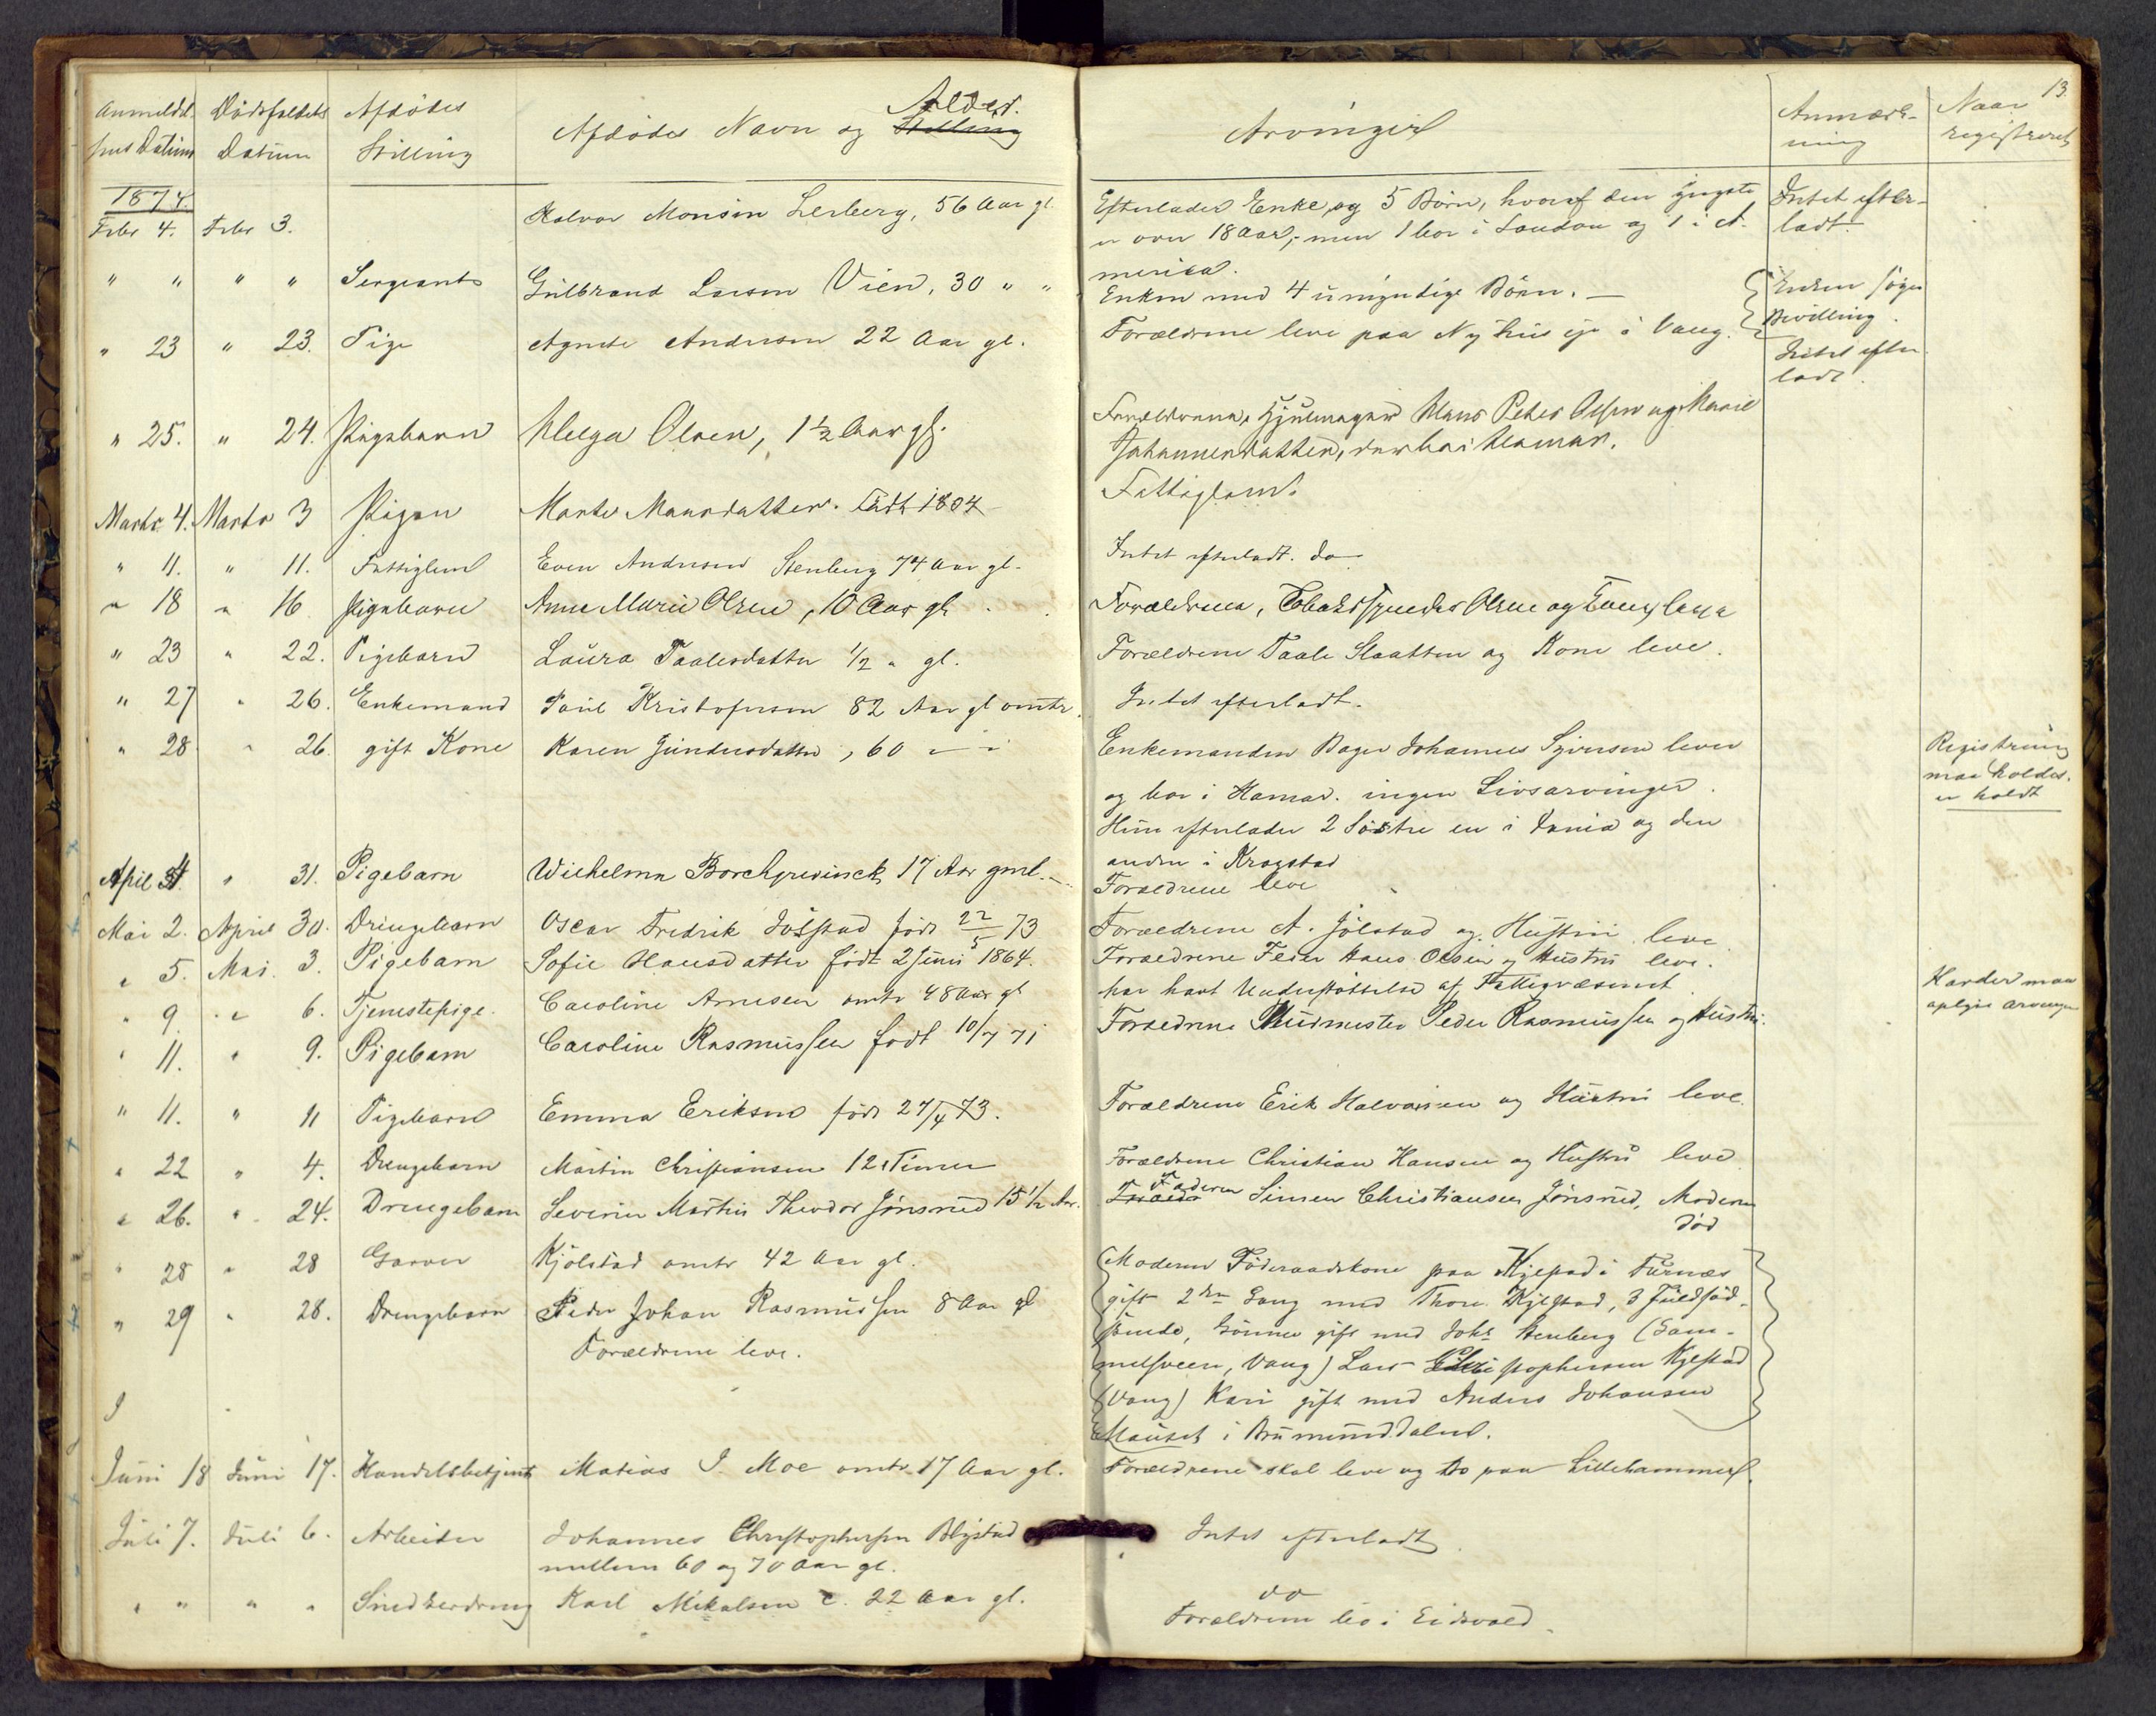 13.
Anmeldel- Dödsfaldets Afdödes Afdödes Navn og Stilling Alder. Arvinger Anmærk- Naar
sens Datum Datum Stilling ning registreret
1874.
Febr 4. Febr 3. Halvor Monsen Lerberg, 56 Aar gl. Efterlader Enke og 5 Børn, hvoraf den yngste Intet efter-
er over 18 Aar, men 1 bor i London og 1 i A- ladt.
merika.
" " " " Sergeant Gulbrand Larsen Vien, 30 " " Enken med 4 umyndige Børn. — Enken søger
Bevilling.
" 23 " 23. Pige Agnete Andersen 22 Aar gl. Forældrene leve paa Nyhus eje i Vang. Intet efter
ladt.
" 25. " 24. Pigebarn Helga Olsen, 1½ Aar gl. Forældrene, Hjulmager Hans Peter Olsen og Marie
Johannesdatter, der bor i Hamar.
Marts 4. Marts 3 Pigen Marte Mansdatter. Født 1804 Fattiglem.
" 11. " 11. Fattiglem Even Andersen Stenberg 74 Aar gl. Intet efterladt. do
" 18 " 16 Pigebarn Anne Marie Olsen, 10 Aar gl. Forældrene, Tobaksspinder Olsen og Kone, leve
" 23 " 22. Pigebarn Laura Paalesdatter ½ " gl. Forældrene Paale Slaatten og Kone leve.
" 27 " 26. Enkemand Poul Kristofersen 82 Aar gl omtr. Intet efterladt.
" 28 " 26. gift Kone Karen Gundersdatter, 60 " " Enkemanden Bager Johannes Syversen lever Registrering
og bor i Hamar. ingen Livsarvinger. maa holdes.
er holdt
Hun efterlader 2 Søstre en i og den
anden i Krogstad
April 4. " 31. Pigebarn Wilhelma Borchgrevinck 17 Aar gml. Forældrene leve
Mai 2. April 30. Drengebarn Oscar Fredrik Jölstad född 22/5 73 Forældrene A. Jölstad og Hustru leve
" 5. Mai 3. Pigebarn Sofie Hansdatter født 2 Juni 1864. Forældrene Feier Hans Olsen og Hustru leve.
" 9. " 6. Tjenestepige. Caroline Arnesen omtr 48 Aar gl har havt Understøttelse af Fattigvæsenet
maa
opgive Arvinger
" 11. " 9. Pigebarn Caroline Rasmussen født 10/7 71 Forældrene Murmester Peder Rasmussen og Hustru.
" 11. " 11 Pigebarn Emma Eriksen född 27/4 73. Forældrene Erik Halvorsen og Hustru leve.
" 22 " 4. Drengebarn Martin Christiansen 12 Timer Forældrene Christian Hansen og Hustru leve
" 26. " 24. Drengebarn Severin Martin Theodor Jönsrud 15½ Aar. Faderen Simen Christiansen Jönsrud, Moderen
död
" 28 " 28 Garver Kjölstad omtr 42 Aar gl. Moderen Föderaadskone paa Kjelstad i Furnæs
" 29 " 28. Drengebarn Peder Johan Rasmussen 8 Aar gl gift 2den Gang med Thore Kjelstad, 3 Fuldsöd-
Forældrene leve. skende, gift med Johs Stenberg (Gam-
melsveen, Vang) Lars Christophersen Kjelstad
(Vang) Kari gift med Anders Johansen
i Brumunddalen.
Juni 18 Juni 17. Handelsbetjent Matias J Moe omtr 17 Aar gl. Forældrene skal leve og bo paa Lillehammer.
Juli 7. Juli 6. Arbeider Johannes Christophersen Blystad Intet efterladt
mellem 60 og 70 Aar gl.
" " " " Snedkerdreng Karl Mikalsen c. 22 Aar gl. do
Forældrene bo i Eidsvold.